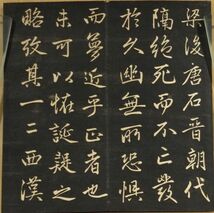 梁後唐石晉朝代
隔絶死而不亡發
於久幽無所恐懼
而夢近乎正者也
未可以怪誕疑之
略攷其一二西漢